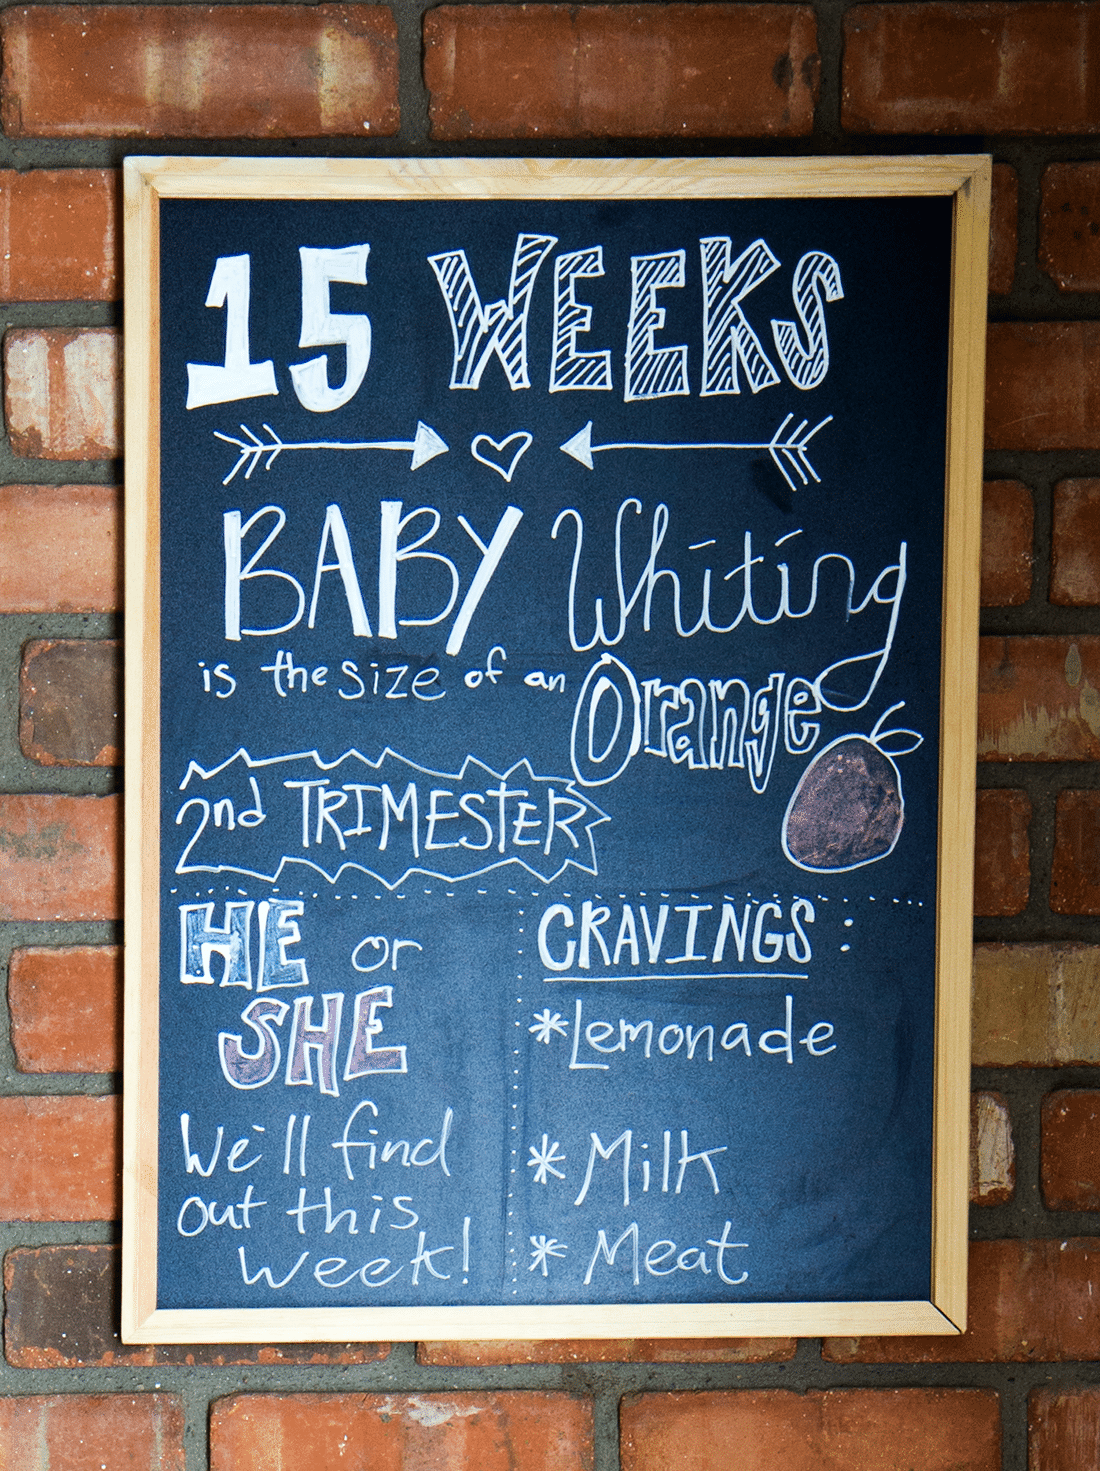 15 WEEKS
BABY Whiting
is the size of an Orange
2nd TRIMESTER
HE or
SHE
We'll find
out this
week!
CRAVINGS:
*Lemonade
*Milk
*Meat